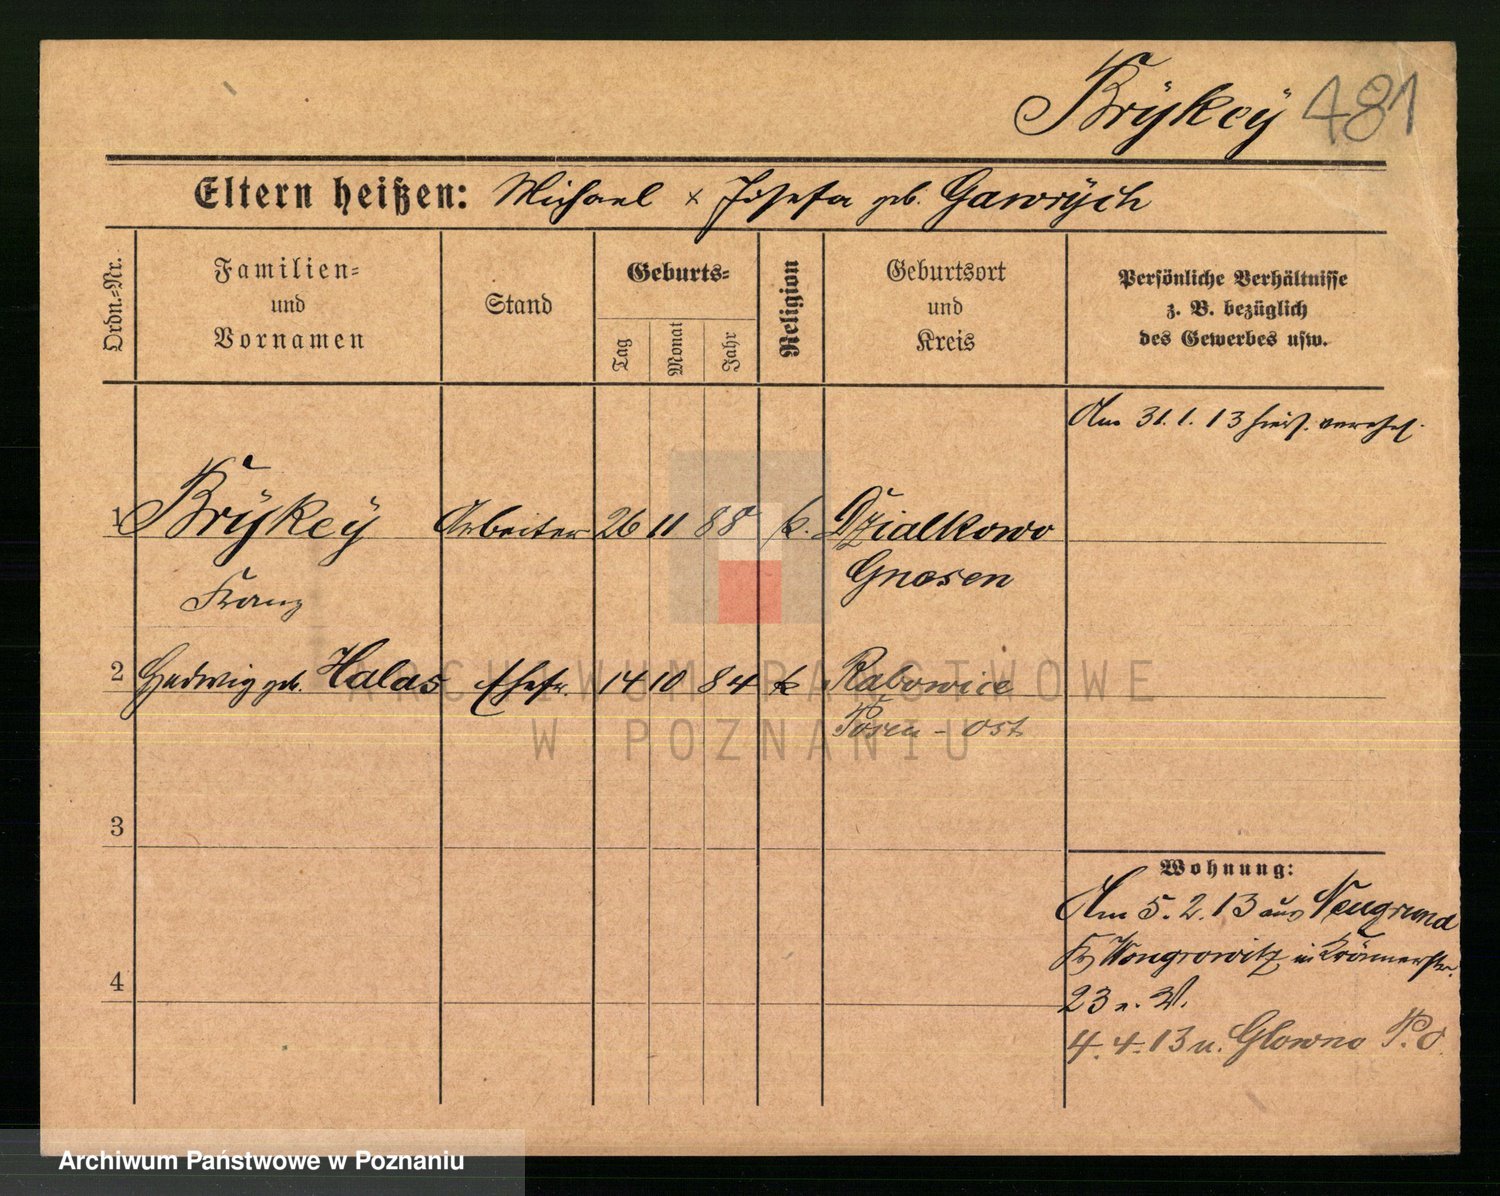 Brÿkcÿ 481
Eltern heißen: Michael x Josefa geb. Gawrÿch
Ordn.-Nr.
Familien-
und
Vornamen
Stand
Geburts-
Tag
Monat
Jahr
Religion
Geburtsort
und
Kreis
Persönliche Verhältnisse
z. B. bezüglich
des Gewerbes usw.
Am 31. 1. 13 hier verehel.
1 Brÿkcÿ Arbeiter 26 11 88 k. Dzialkowo
Gnesen
Franz
2 Hedwig geb. Halas Ehefr. 14 10 84 k Rabowice
Posen-Ost
3
Wohnung:
Am 5. 2. 13 aus Neugrund
Kr Wongrowitz in
4
23 v. W.
4. 4. 13 n. Glowno P. O.
ARCHIWUM PAŃSTWOWE
W POZNANIU
Archiwum Państwowe w Poznaniu